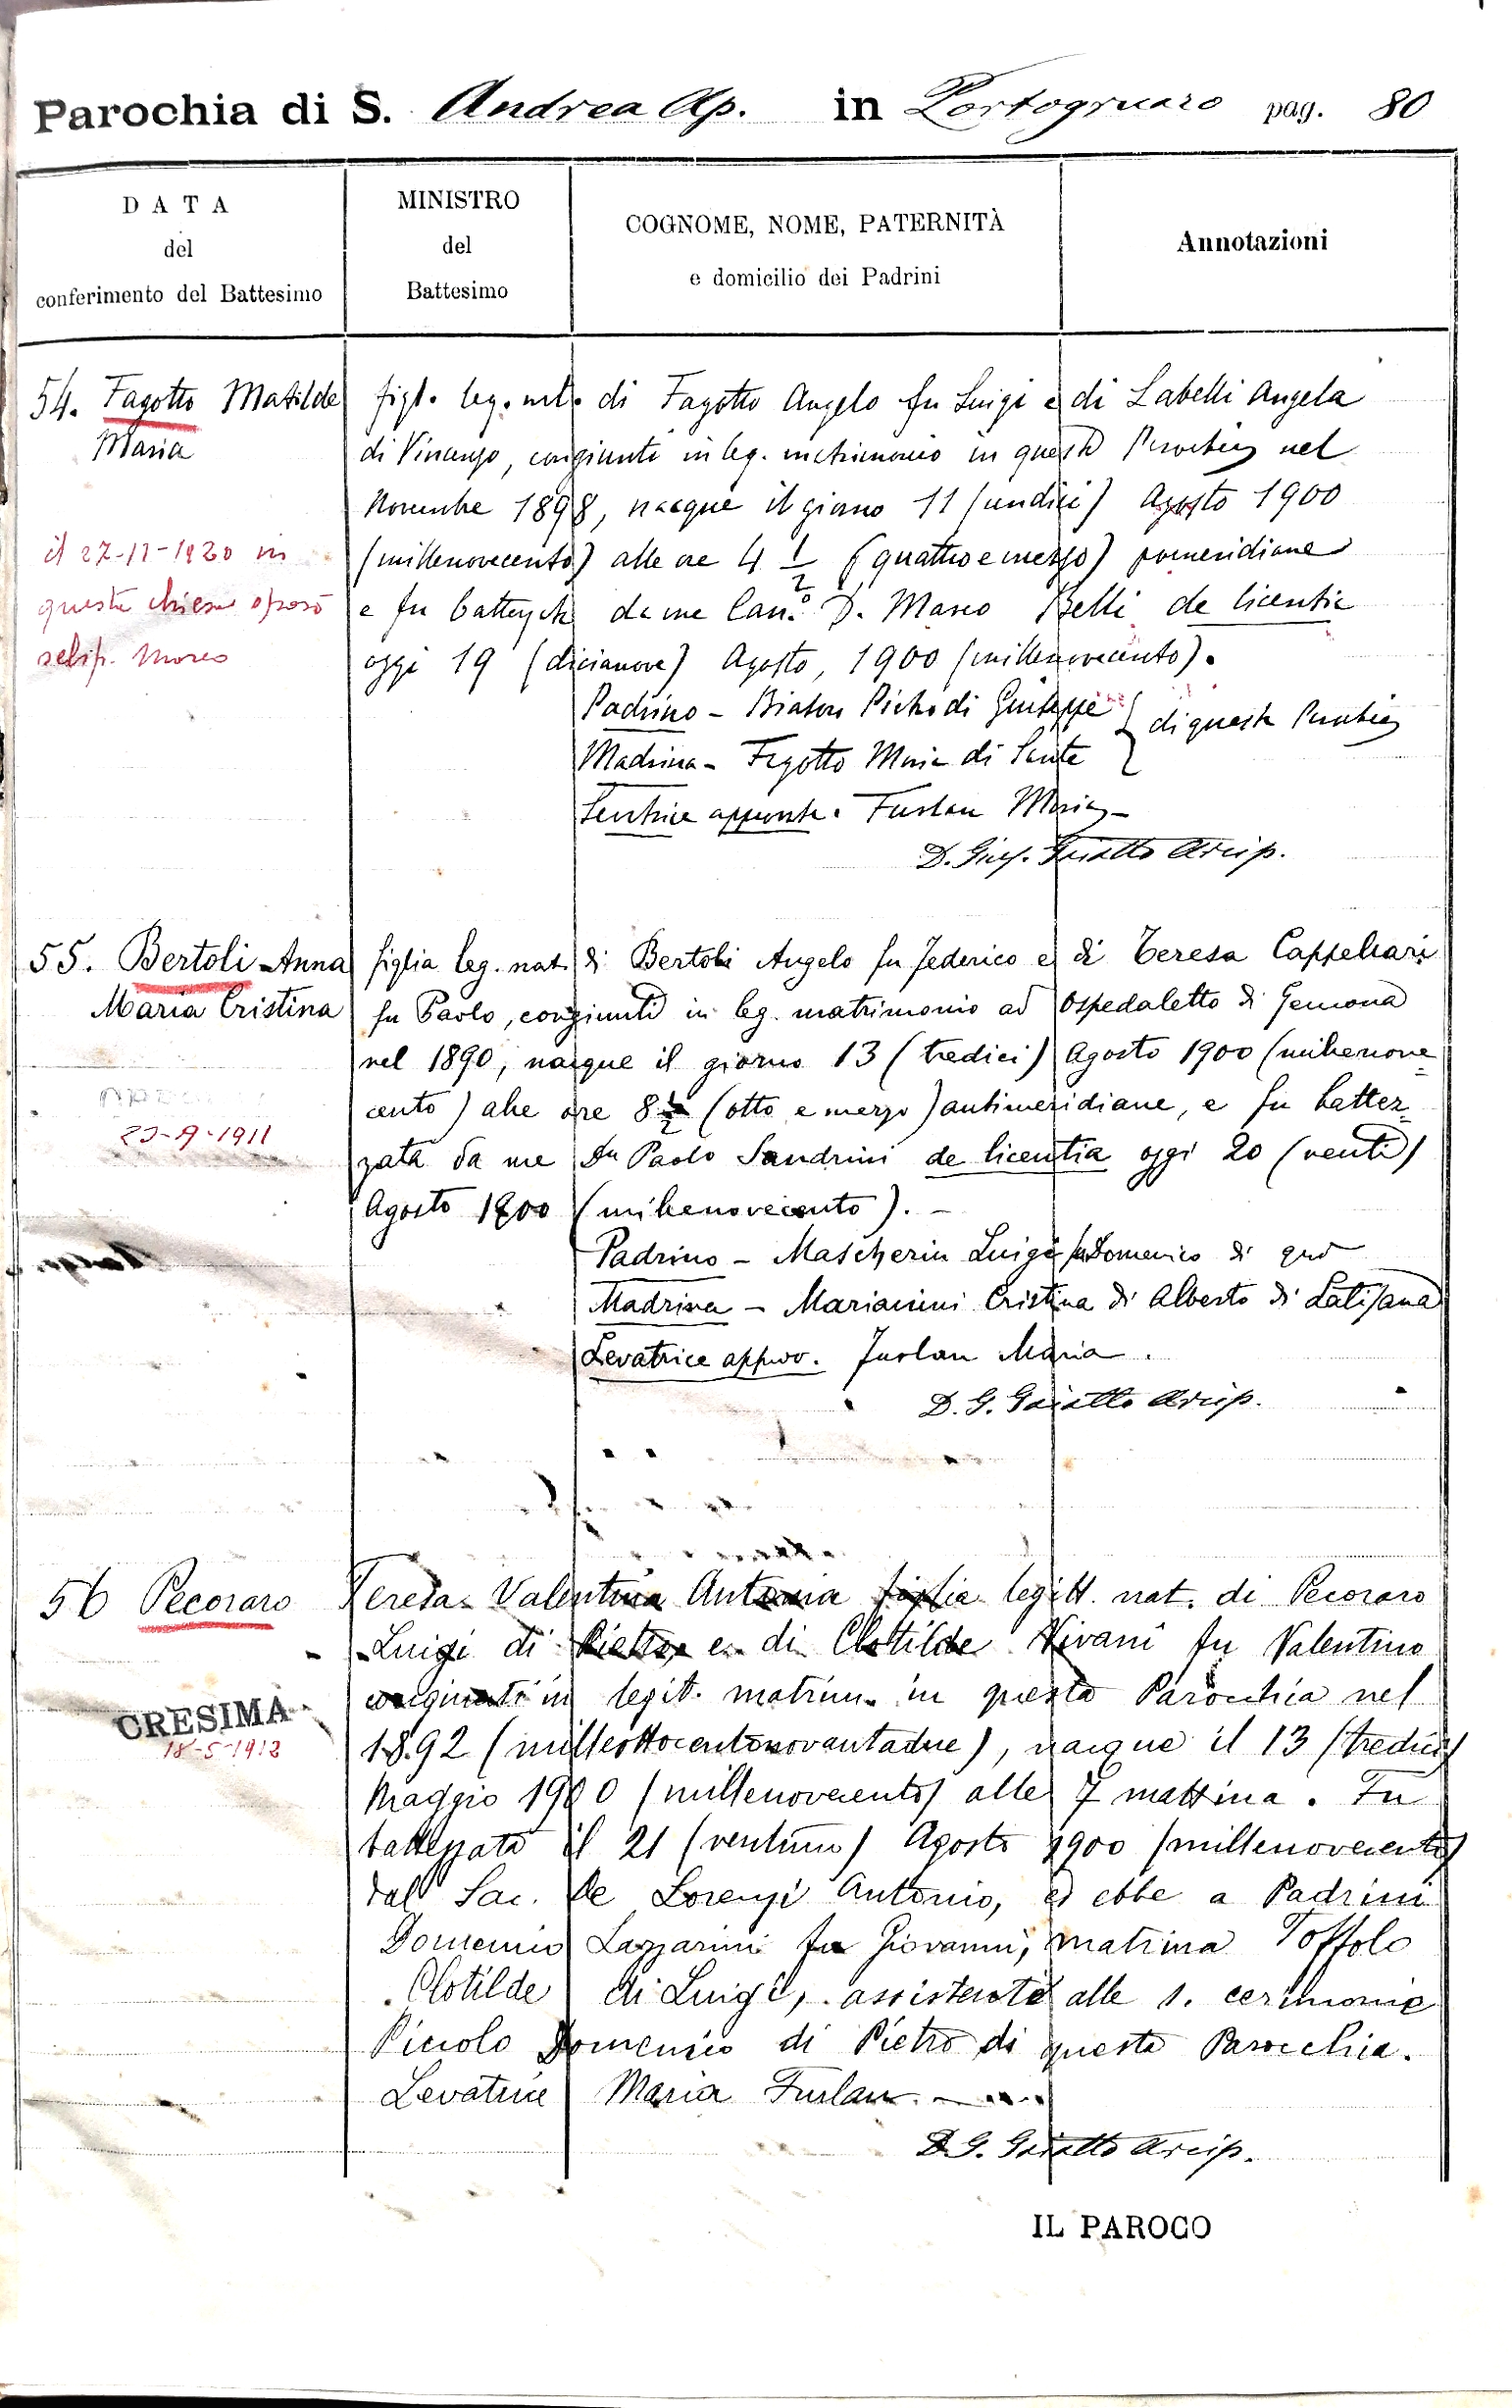 Parochia di S. Andrea Ap. in Portogruaro pag. 80
DATA
del
conferimento del Battesimo
MINISTRO
del
Battesimo
COGNOME, NOME, PATERNITÀ
e domicilio dei Padrini
Annotazioni
54. Fagotto Matilde
Maria
il 27-11-1920 in
questa chiesa sposò
Moreo
figl. leg. nat. di Fagotto Angelo fu Luigi e di Labelli Angela
di Vincenzo, congiunti in leg. matrimonio in questa Parochia nel
Novembre 1898, nacque il giorno 11 (undici) Agosto 1900
(millenovecento) alle ore 4 1/2 (quattro e mezzo) pomeridiane
e fu battezzata da me Can.o D. Marco Belli de licentia
oggi 19 (dicianove) Agosto, 1900 (millenovecento).
Padrino - Pietro di Giuseppe
Madrina - Fagotto Maria di Sante } di questa Parochia
approvata. Furlan Maria -
D. Gius. Gaiatto Arcip.
55. Bertoli Anna
Maria Cristina
23-9-1911
figlia leg. nat. di Bertoli Angelo fu Federico e di Teresa Cappellari
fu Paolo, congiunti in leg. matrimonio ad Ospedaletto di Gemona
nel 1890, nacque il giorno 13 (tredici) Agosto 1900 (millenove
cento) alle ore 8 1/2 (otto e mezzo) antimeridiane, e fu battez=
zata da me Dn Paolo Sandrini de licentia oggi 20 (venti)
Agosto 1900 (millenovecento). -
Padrino - Mascherin Luigi fu Domenico di qui
Madrina - Marianini Cristina di Alberto di Latisana
Levatrice approv. Furlan Maria.
D. G. Gaiatto Arcip.
56 Pecoraro
CRESIMA
18-5-1913
Teresa Valentina Antonia figlia legitt. nat. di Pecoraro
Luigi di Pietro e di Clotilde Vivani fu Valentino
congiunti in legit. matrim. in questa Parocchia nel
1892 (milleottocentonovantadue), nacque il 13 (tredici)
Maggio 1900 (millenovecento) alle 7 mattina. Fu
battezzata il 21 (ventuno) Agosto 1900 (millenovecento)
dal Sac. De Lorenzi Antonio, ed ebbe a Padrini
Domenico Lazzarini fu Giovanni, matrina Toffolo
Clotilde di Luigi, assistente alle s. cerimonie
Piccolo Domenico di Pietro di questa Parocchia.
Levatrice Maria Furlan. -
D. G. Gaiatto Arcip.
IL PAROCO